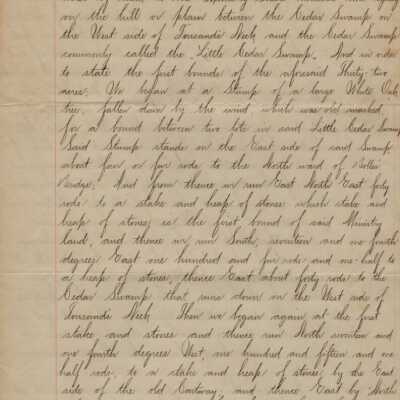 on the hill or plain between the Cedar Swamp on
the West side of Neck and the Cedar Swamp
commonly called the Little Cedar Swamp. And in order
to state the first bounds of the aforesaid Thirty two
acres; We began at a Stump of a large White Oak
tree, fallen down by the wind which was old marked
for a bound between two lots in said Little Cedar Swamp
Said Stump stands on the East side of said Swamp
about four or five rods to the North ward of
Bridge; And from thence we run East North East forty
rods to a stake and heap of stones which stake and
heap of stones is the first bound of said Ministry
land, and thence we run South, seventeen and one fourth
degrees East one hundred and five rods and one-half to
a heap of stones, thence East about forty rods to the
Cedar Swamp that runs down on the West side of
Neck Then we began again at the first
stake and stones and thence run North seventeen and
one fourth degrees West, one hundred and fifteen and one
half rods, to a stake and heap of stones by the East
side of the old Cartway, and thence East by North